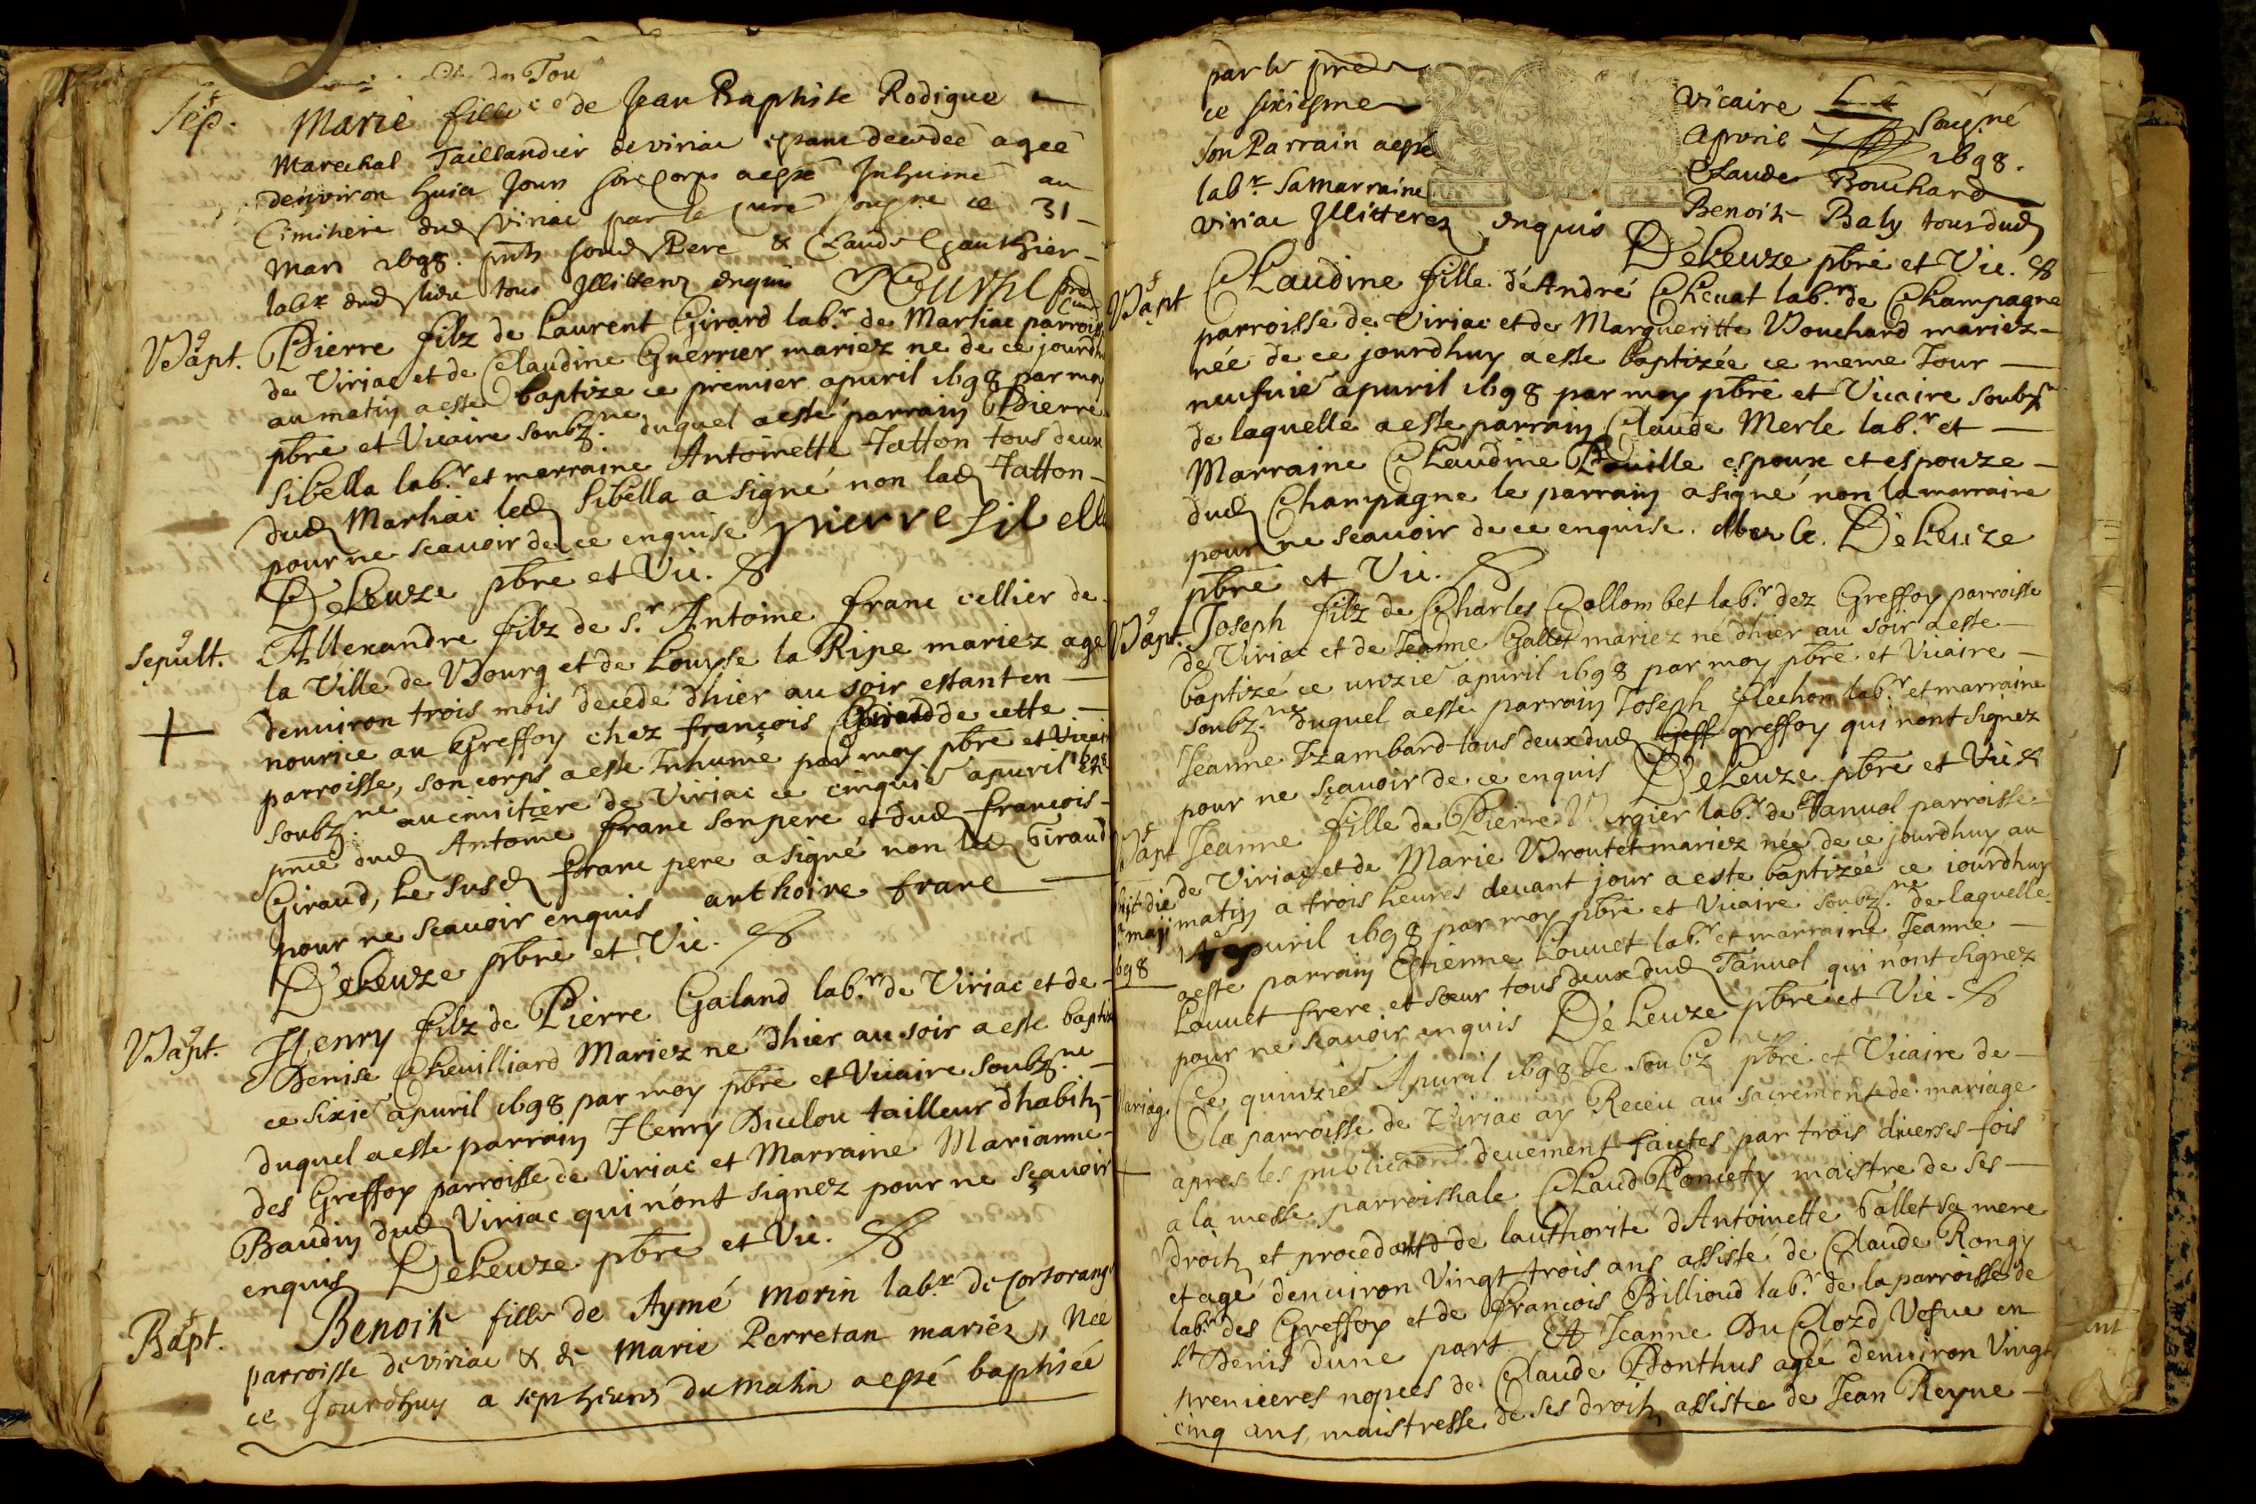 Sep.
Marie fille de Jean Baptiste Rodigue
Marechal Taillandier de viriac estant decedeé ageé
denviron huict Jours son corps a esté Inhumé au
Cimitiere dud viriac par le curé sousigné ce 31
Mars 1698. pnts sond Pere & Claude Gauthier
labr dud lieu tous Illitterez enquis
Bapt. Pierre filz de Laurent Girard lab.r de Marliac parroisse
de Viriac et de Claudine Guerrier mariez ne de ce jourdhuy
au matin a esté baptize ce premier apuril 1698 par moy
pbre et Vicaire soubz.ne duquel a esté parrain Pierre
Sibella lab.r et marraine Antoinette Tatton tous deux
dud Marliac led Sibella a signé non lad Tatton
pour ne scauoir de ce enquise pierre Sibella
DeLeuze pbre et Vic.
Sepult. Allexandre filz de s.r Antoine franc cellier de
la Ville de Bourg et de Louyse la Ripe mariez agé
denuiron trois mois decedé dhier au soir estant en
nourice au Greffoy chez françois Giraud de cette
parroisse, son corps a esté Inhumé par moy pbre et Vicaire
soubz.ne au cimitiere de Viriac ce cinquie apuril 1698
pnce dud Antoine franc son pere et dud françois
Giraud, Le susd franc pere a signé non led Giraud
pour ne scauoir enquis anthoine franc
DeLeuze pbre et Vic.
Bapt. Henry filz de Pierre Galand lab.r de Viriac et de
Denise Cheuilliard Mariez né dhier au soir a esté baptizé
ce sixie apuril 1698 par moy pbre et Vicaire soubz.ne
duquel a esté parrain Henry Duclou tailleur dhabitz
des Greffoy parroisse de Viriac et Marraine Marianne
Baudin dud Viriac qui n'ont signez pour ne sçauoir
enquis DeLeuze pbre et Vic.
Bapt. Benoite fille de Aymé Morin lab.r de Cortorange
parroisse de viriac & de Marie Perretan mariez, Neé
ce Jourdhuy a sept heures du matin a esté baptiseé
par le vicaire sousigné
ce sixiesme Apvril 1698.
son Parrain a esté Claude Bouchard
lab.r sa marraine Benoite Baly tous dud
viriac Illitterez enquis DeLeuze pbre et Vic.
Bapt Claudine fille de André Cheuat lab.r de Champagne
parroisse de Viriac et de Margueritte Bouchard mariez
neé de ce jourdhuy a esté baptizée ce meme Jour
neufuie apuril 1698 par moy pbre et Vicaire soubz
de laquelle a esté parrain Claude Merle lab.r et
Marraine Claudine espoux et espouze
dud Champagne le parrain a signé non la marraine
pour ne scauoir de ce enquise. Merle. DeLeuze
pbre et Vic.
Bapt. Joseph filz de Charles Collombet lab.r dez Greffoy parroisse
de Viriac et de Jeanne Gallet mariez né dhier au soir a esté
baptizé ce unzie apuril 1698 par moy pbre et Vicaire
soubz.ne duquel a esté parrain Joseph lab.r et marraine
Jeanne Izambard tous deux dud Greff greffoy qui n'ont signez
pour ne sçauoir de ce enquis DeLeuze pbre et Vic
Bapt Jeanne fille de Pierre lab.r de Tanuol parroisse
de Viriac et de Marie Broutet mariez neé de ce jourdhuy au
matin a trois heures deuant jour a esté baptizée ce iourdhuy
14e apuril 1698 par moy pbre et Vicaire soubz.ne de laquelle
a esté parrain Estienne Louuet lab.r et marraine Jeanne
Louuet frere et soeur tous deux dud Tanuol qui n'ont signez
pour ne scauoir enquis DeLeuze pbre et Vic.
maji
698
Mariag. Ce quinzie Apuril 1698 Je soubz.ne pbre et Vicaire de
la parroisse de Viriac ay Receu au sacrement de mariage
apres les publicaons deuement faites par trois diuerses fois
a la messe parroissiale Claud Poncety maistre de ses
droitz et procedant de lauthorite d'Antoinette Gallet sa mere
et agé denuiron Vingt trois ans assisté de Claude Rongy
lab.r des Greffoy et de François Billioud lab.r de la parroisse de
St Denis dune part Et Jeanne Du Clozd Vefue en
premieres nopces de Claude Ponthus ageé denuiron Vingt
cinq ans, maistresse de ses droitz assisteé de Jean Reyne